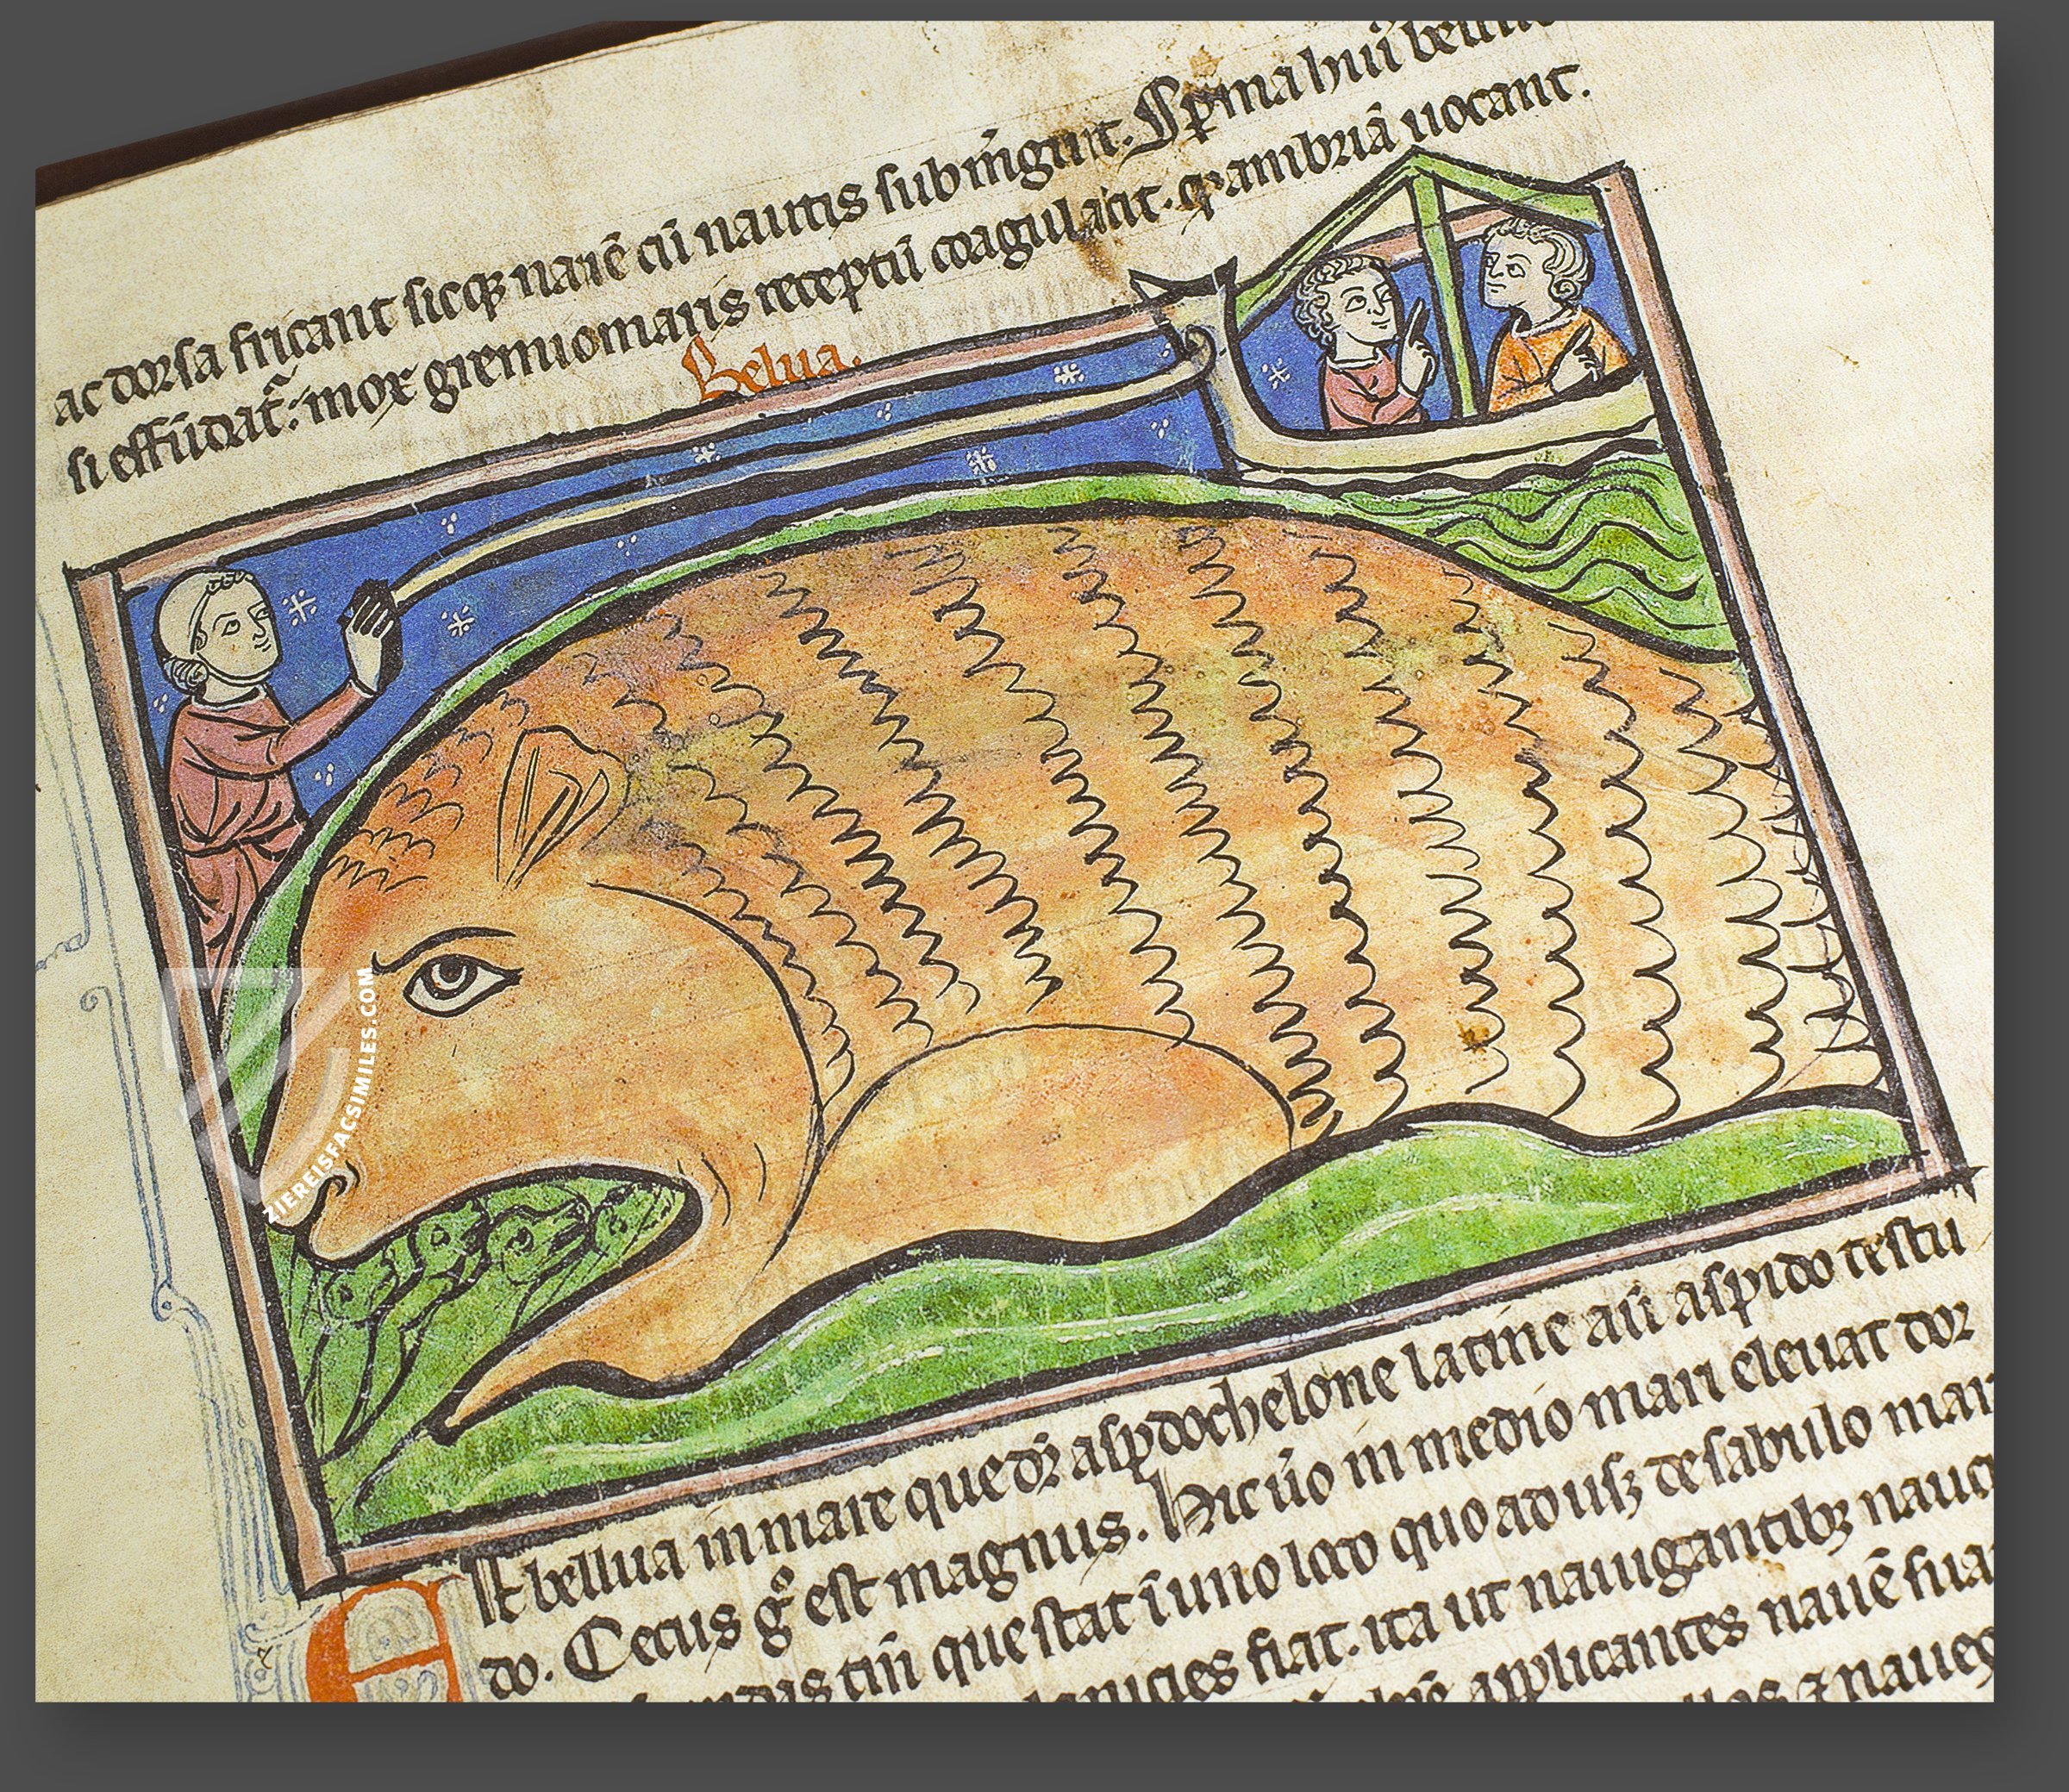 ac dorsa fricant sicq; naue cu nautis submgnt. Spma hui belue
si effudat: mox gremio maris receptu coagulatit. qd ambria uocant.
Belua.
ZIEREISFACSIMILES.COM
Est bellua in mare que dr aspidochelone latine au aspido testu
do. Cetus g est magnus. Hic uo in medio mari eleuat dor
tm que stat i uno loco quo adusq; de sabulo mar
planicies fiat. ita ut nauigantib;
applicantes naue sua